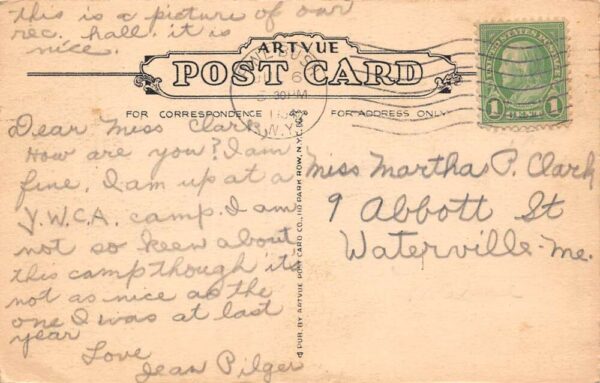 this is a picture of our
rec. hall. it is
nice.
ARTVUE
POST CARD
FOR CORRESPONDENCE
FOR ADDRESS ONLY
6
30 PM
N.Y.
UNITED STATES POSTAGE
1 CENT 1
Dear Miss Clark,
How are you? I am
fine. I am up at a
Y.W.C.A. camp. I am
not so keen about
this camp though it's
not as nice as the
one I was at last
year
Love
Jean Pilger
PUB. BY ARTVUE POST CARD CO., PARK ROW, N.Y.C.
Miss Martha P. Clark
9 Abbott St
Waterville-Me.